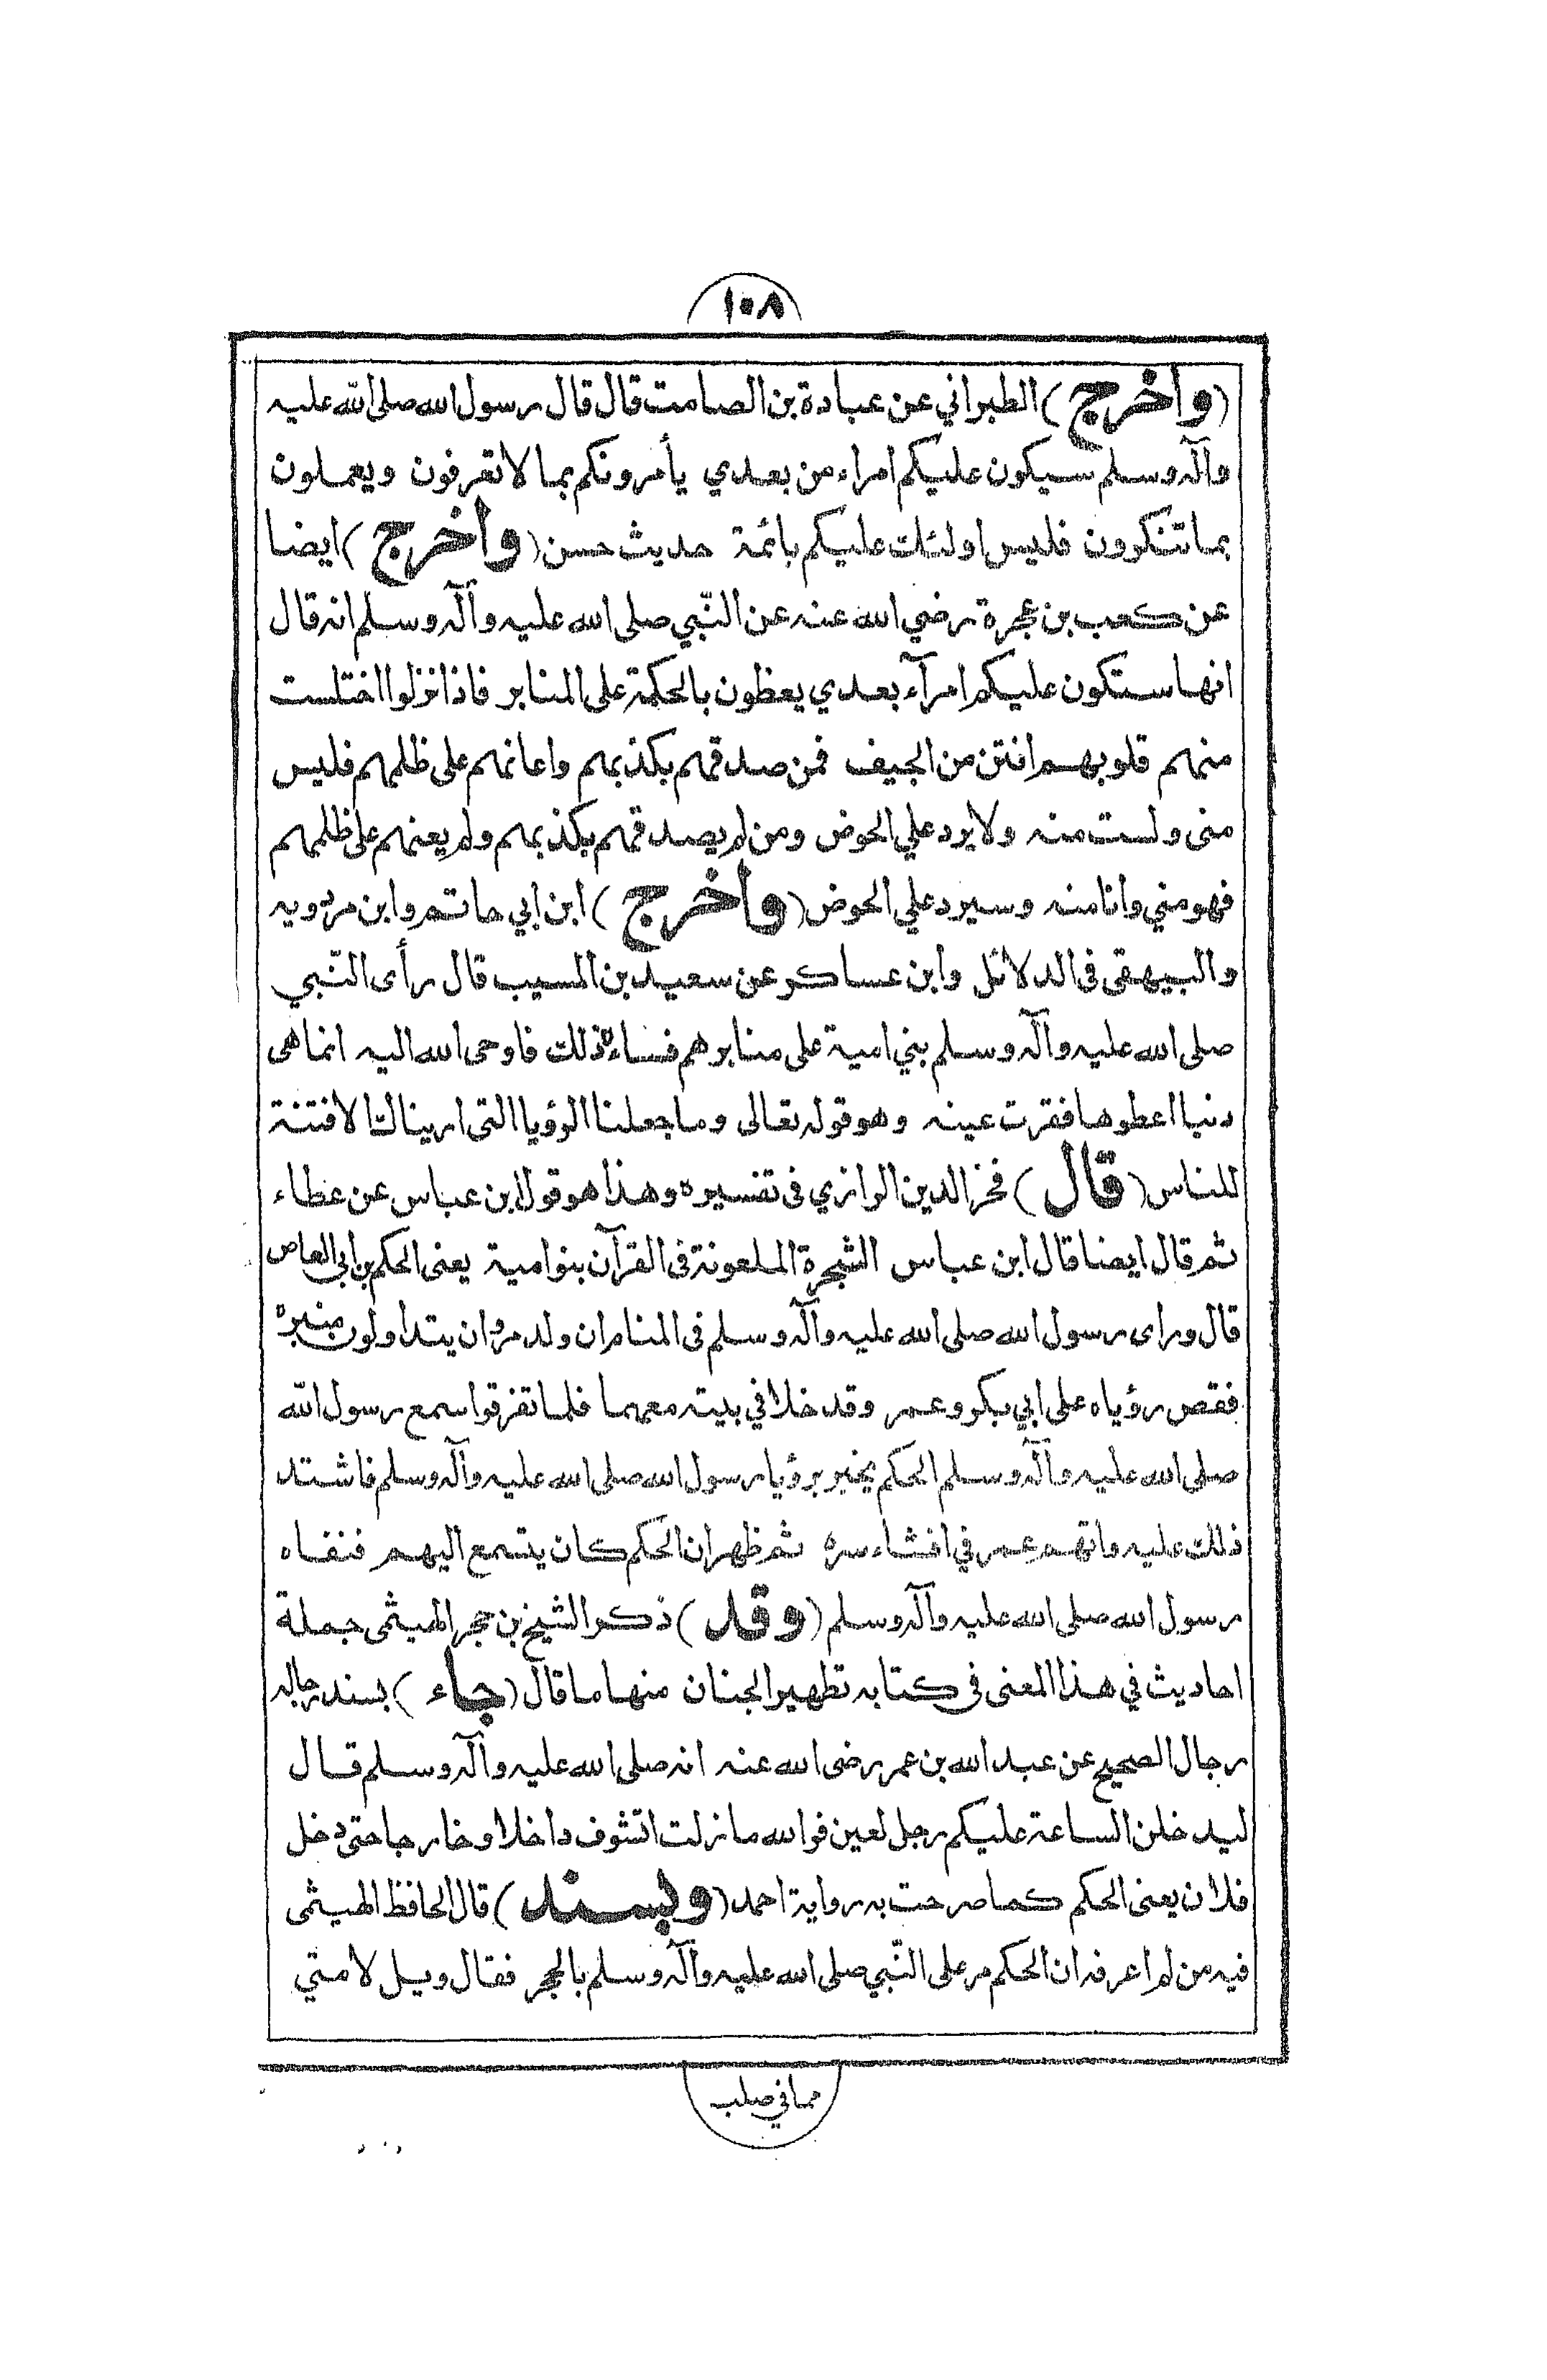 ١٠٨
(وأخرج) الطبراني عن عبادة بن الصامت قال قال رسول الله صلى الله عليه
وآله وسلم سيكون عليكم امراء من بعدي يأمرونكم بما لا تعرفون ويعملون
بما تنكرون فليس اولئك عليكم بائمة حديث حسن (وأخرج) ايضا
عن كعب بن عجرة رضي الله عنه عن النّبي صلى الله عليه وآله وسلم انه قال
انها ستكون عليكم امرآء بعدي يعظون بالحكمة على المنابر فاذا نزلوا اختلست
منهم قلوبهم انتن من الجيف فمن صدقهم بكذبهم واعانهم على ظلمهم فليس
منى ولست منه ولا يرد علي الحوض ومن لم يصدقهم بكذبهم ولم يعنهم على ظلمهم
فهو مني وانا منه وسيرد علي الحوض (وأخرج) ابن ابي حاتم وابن مردويه
والبيهقى فى الدلائل وابن عساكر عن سعيد بن المسيب قال رأى النّبي
صلى الله عليه وآله وسلم بني امية على منابرهم فساءه ذلك فاوحى الله اليه انما هى
دنيا اعطوها فقرت عينه وهو قوله تعالى وما جعلنا الرؤيا التى اريناك الا فتنة
للناس (قال) فخر الدين الرازي فى تفسيره وهذا هو قول ابن عباس عن عطاء
ثم قال ايضا قال ابن عباس الشجرة الملعونة فى القرآن بنو امية يعنى الحكم بن ابي العاص
قال وراى رسول الله صلى الله عليه وآله وسلم فى المنام ان ولد مروان يتداولون منبره
فقص رؤياه على ابي بكر وعمر وقد خلا في بيته معهما فلما تفرقوا سمع رسول الله
صلى الله عليه وآله وسلم الحكم يخبر برؤيا رسول الله صلى الله عليه وآله وسلم فاشتد
ذلك عليه واتهم عمر في افشاء سره ثم ظهر ان الحكم كان يتسمع اليهم فنفاه
رسول الله صلى الله عليه وآله وسلم (وقد) ذكر الشيخ بن حجر الهيثمى جملة
احاديث في هذا المعنى فى كتابه تطهير الجنان منها ما قال (جاء) بسند رجاله
رجال الصحيح عن عبد الله بن عمر رضى الله عنه انه صلى الله عليه وآله وسلم قال
ليدخلن الساعة عليكم رجل لعين فوالله ما زلت اتشوف داخلا وخارجا حتى دخل
فلان يعنى الحكم كما صرحت به رواية احمد (وبسند) قال الحافظ الهيثمى
فيه من لم اعرفه ان الحكم مر على النّبي صلى الله عليه وآله وسلم بالحجر فقال ويل لامتي
مما في صلب